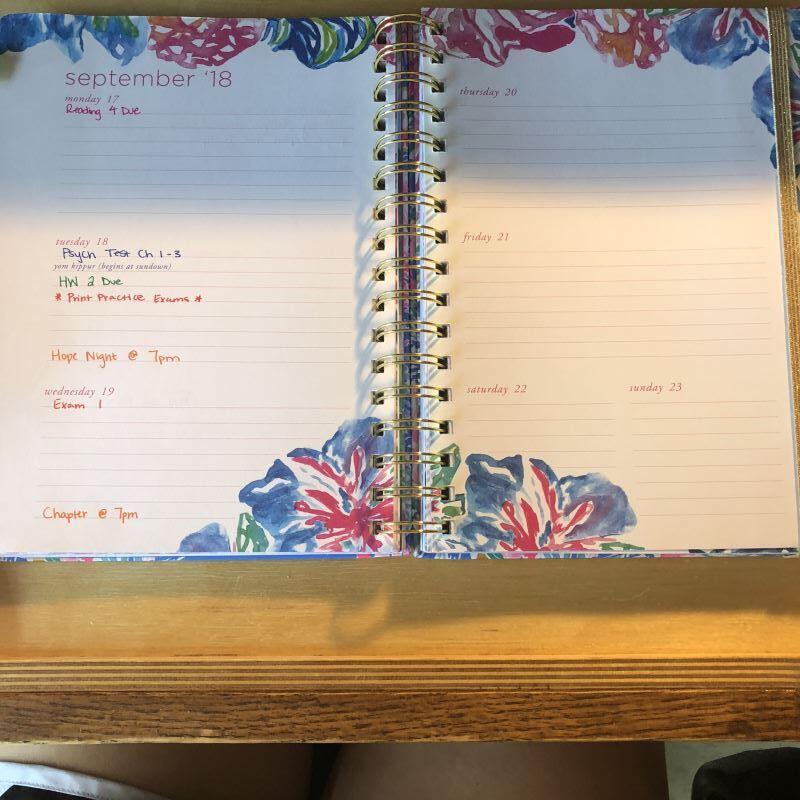 september '18
monday 17
Reading 4 Due
tuesday 18
Psych Test Ch 1-3
yom kippur (begins at sundown)
HW 2 Due
* Print Practice Exams *
Hope Night @ 7pm
wednesday 19
Exam 1
Chapter @ 7pm
thursday 20
friday 21
saturday 22
sunday 23